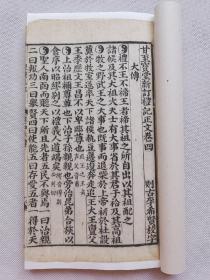 新訂禮記正文卷四
大傳
禮不王不禘王者禘其祖之所自出以其祖配之
諸侯及其大祖大夫士有大事省於其君干祫及其高祖
牧之野武王之大事也既事而退柴於上帝祈於社設
奠於牧室遂率天下諸侯執豆籩逡奔走追王大王亶父
王季歷文王昌不以卑臨尊也
上治祖禰尊尊也下治子孫親親也旁治昆弟合族以
食序以昭繆別之以禮義人道竭矣
聖人南面而聽天下所且先者五民不與焉一曰治
二曰報功三曰舉賢四曰使能五曰存愛五者一得於天